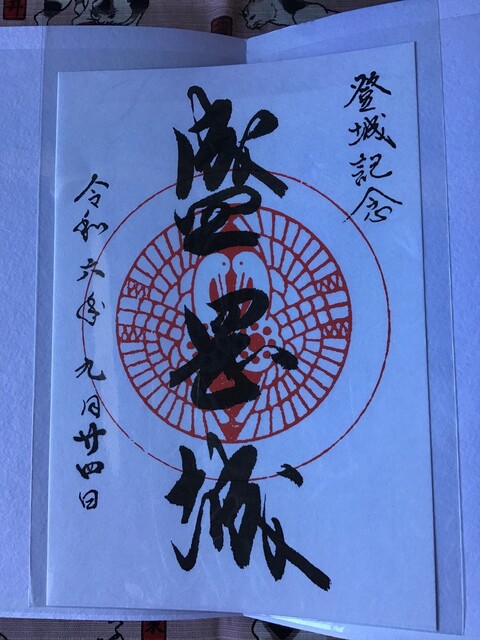 登城記念
盛岡城
令和六年九月廿四日